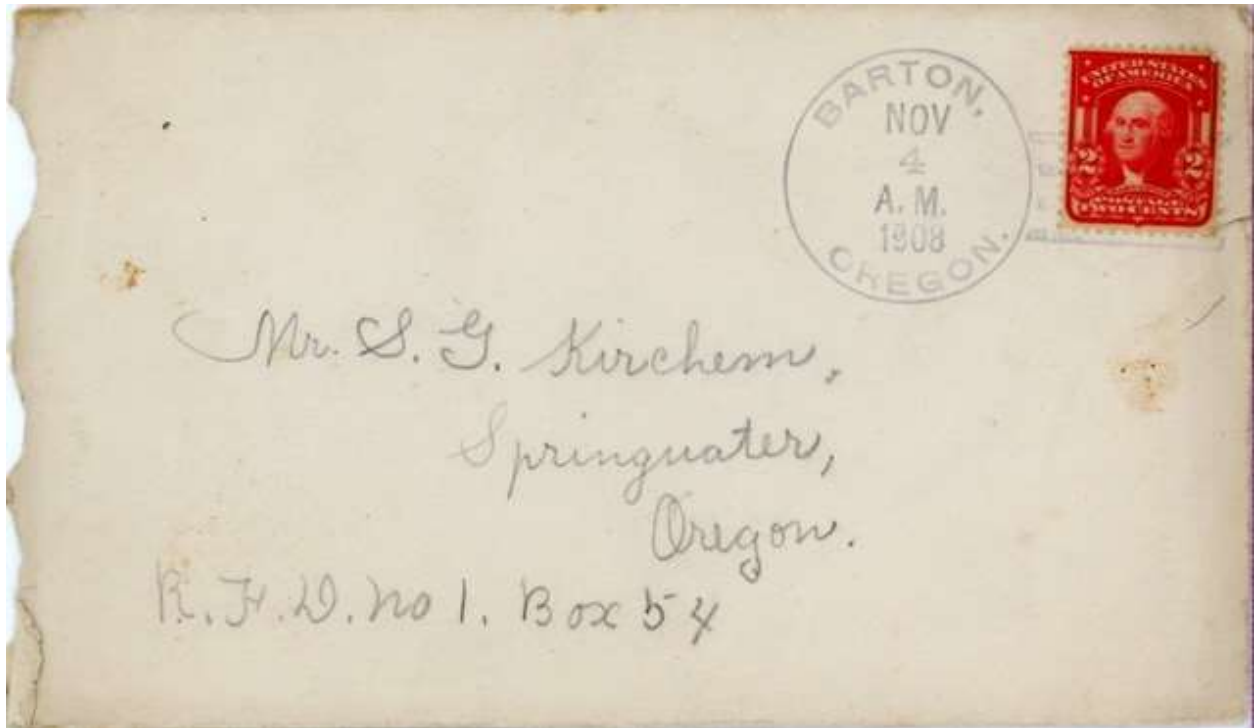 BARTON,
NOV
4
A. M.
1908
OREGON.
UNITED STATES
OF AMERICA
2 2
POSTAGE
TWO CENTS
Mr. S. G. Kirchem,
Springwater,
Oregon.
R. F. D. No 1. Box 54